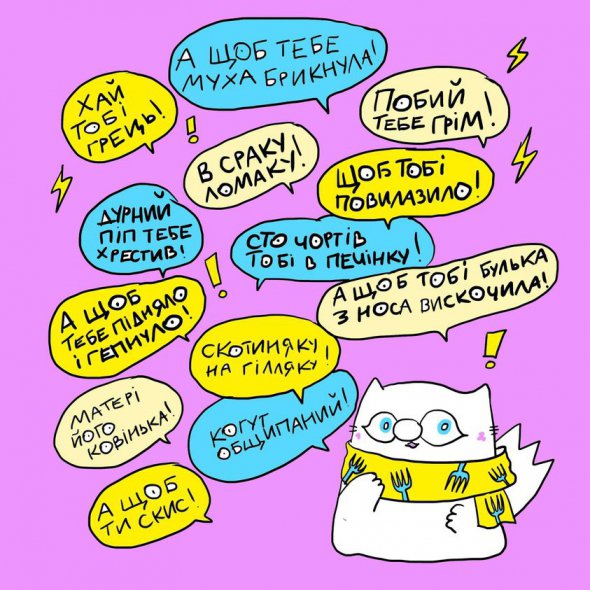 А ЩОБ ТЕБЕ
МУХА БРИКНУЛА!
ХАЙ
ТОБІ
ГРЕЦЬ!
!
ПОБИЙ
ТЕБЕ ГРІМ!
В СРАКУ
ЛОМАКУ!
ЩОБ ТОБІ
ПОВИЛАЗИЛО!
ДУРНИЙ
ПІП ТЕБЕ
ХРЕСТИВ!
СТО ЧОРТІВ
ТОБІ В ПЕЧІНКУ!
!
А ЩОБ ТОБІ БУЛЬКА
З НОСА ВИСКОЧИЛА!
А ЩОБ
ТЕБЕ ПІДНЯЛО
І ГЕПНУЛО!
СКОТИНЯКУ
НА ГІЛЛЯКУ!
!
МАТЕРІ
ЙОГО
КОВІНЬКА!
КОГУТ
ОБЩИПАНИЙ!
А ЩОБ
ТИ СКИС!